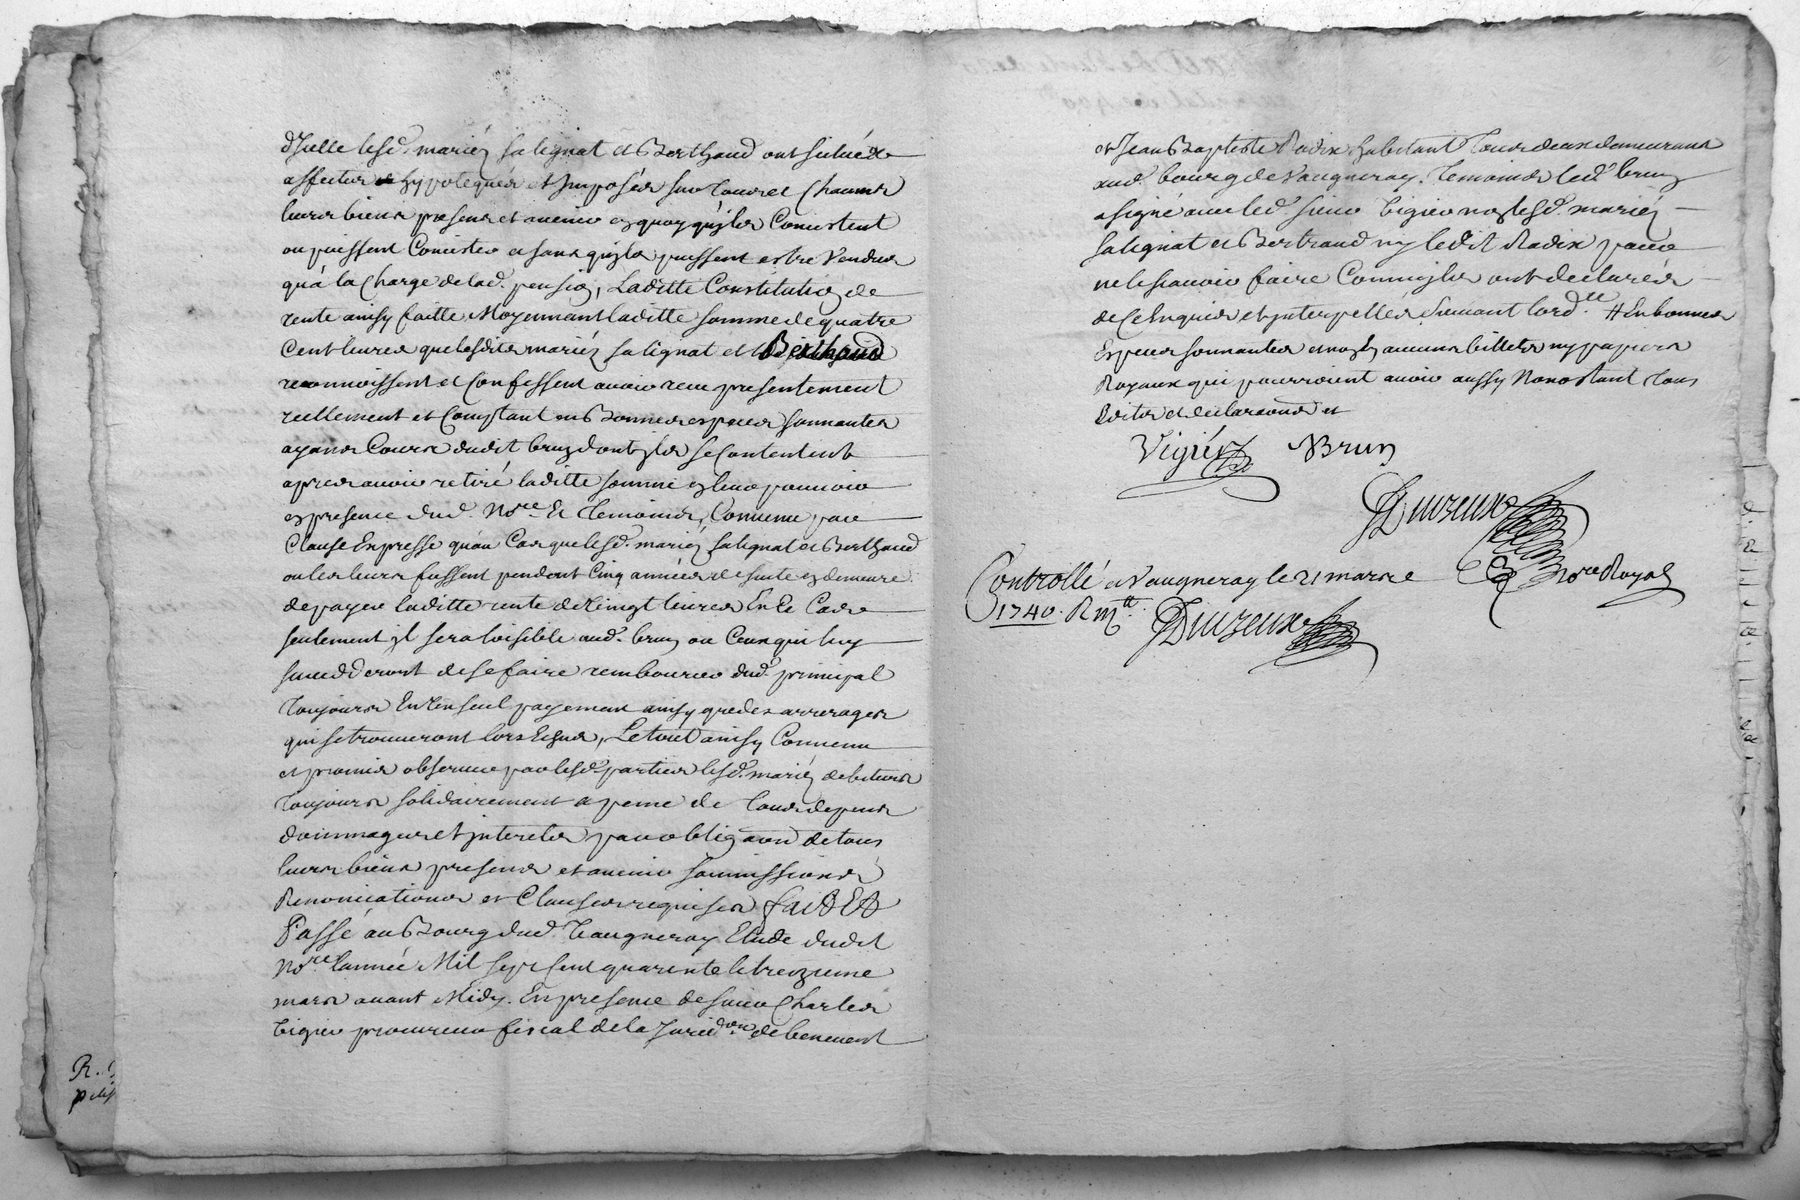 d'Jcelle lesd. mariéz salignat et Berthaud ont situéé
affectée hypotequéé et Jmposéé sur tous et Chacuns
leurs biens presens et avenir en quoy qu'jls Consistent
ou puissent Consister et sans qu'jls puissent estre Vendus
qu'à la Charge de lad. pension, Laditte Constitution de
rente ainsy faitte Moyennant laditte somme de quatre
Cent livres que lesdits mariéz salignat et Berthaud
reconnoissent et Confessent avoir reçu presentement
reellement et Comptant en Bonnes especes sonnantes
ayans Cours dudit brun dont jls se Contentent
apres avoir retiré laditte somme en leur pouvoir
en presence dud. Nore. Et temoins, Convenu par
Clause Expresse qu'au Cas que lesd. mariéz salignat et Berthaud
ou les leurs fussent pendant Cinq années de suite en demeure
de payer laditte rente de Vingt livres En Ce Cas
seulement jl sera loisible aud. brun ou Ceux qui luy
succedderont de se faire rembourcer dud. principal
toujours En Un seul payement ainsy que des arrerages
qui se trouveront lors Echus, Le tout ainsy Convenu
et promis observer par lesd. parties lesd. mariéz debiteurs
toujours solidairement a peine de tous depens
dommages et jnterets par obligaon de tous
leurs biens presens et avenir soumissions
Renonciations et Clauses requises fait Et
Passé au Bourg dud. Vaugneray Etude dudit
Nore. l'année Mil sept cent quarente le treizieme
mars avant Midy. En presence de sieur Charles
Vigier procureur fiscal de la Juridon. de benevent
et Jean Baptiste Radix habitant tous deux demeurans
aud. bourg de Vaugneray. temoins led. brun
a signé avec led. sieur Vigier non lesd. mariéz
salignat et Bertraud ny ledit Radix pour
ne le sçavoir faire Comm'jls ont declarés
de Ce Enquis et jnterpellés Suivant l'ord.ce # En bonnes
Especes sonnantes et non En aucuns billets ny papiers
Royaux qui pourroient avoir aussy Nonobstant tous
Edits et declaraons et
Vigier Brun
Duvzeux
Nore Royal
Controllé a Vaugneray le 21 mars
1740. R
Duvzeux
R.